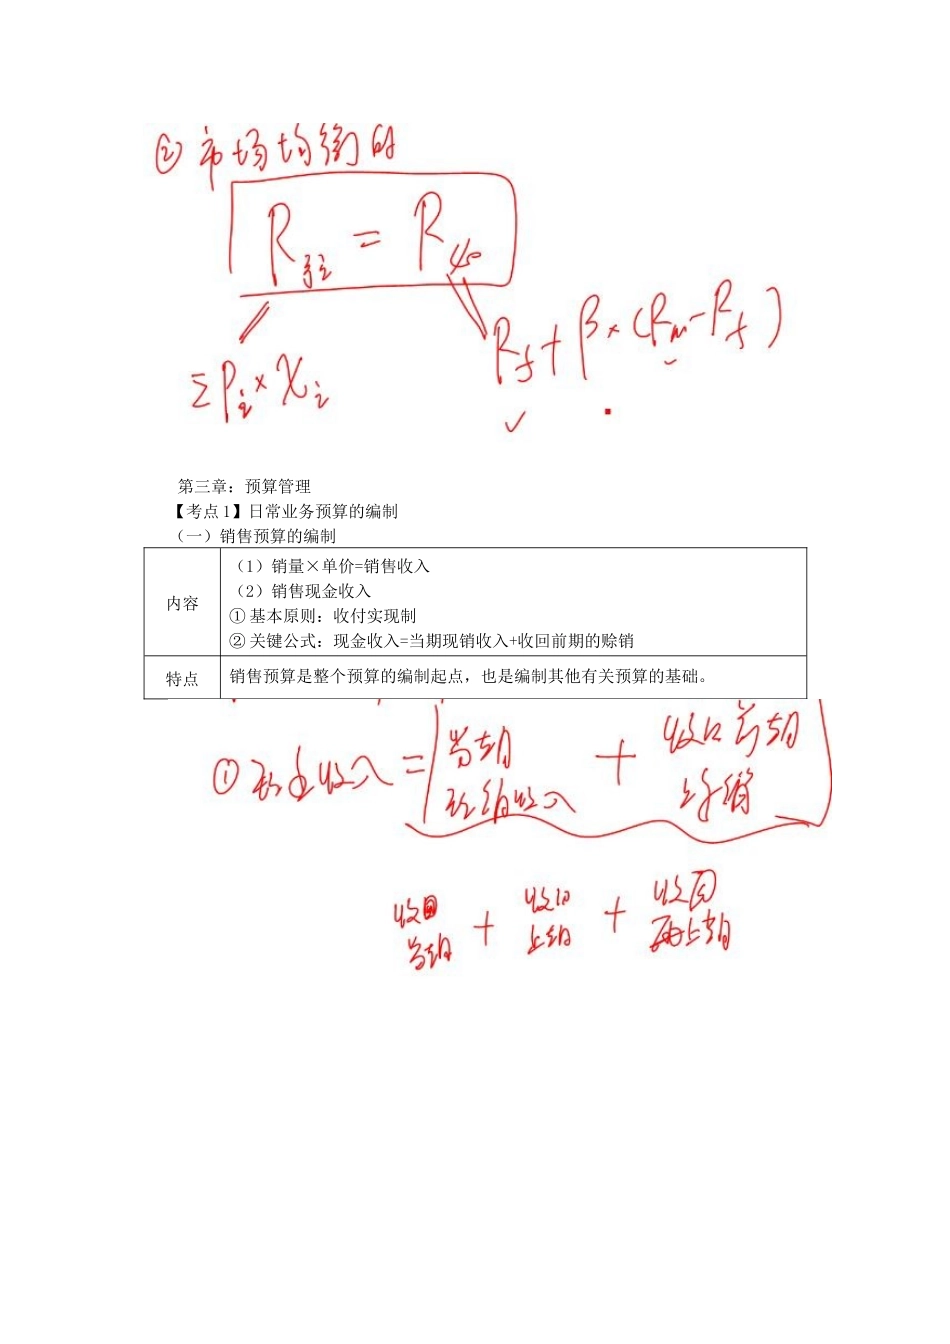 ② 市场均衡时
R预 = R必
ΣPi×Xi
Rf+β×(Rm-Rf)
第三章：预算管理
【考点 1】日常业务预算的编制
（一）销售预算的编制
内容
（1）销量×单价=销售收入
（2）销售现金收入
① 基本原则：收付实现制
② 关键公式：现金收入=当期现销收入+收回前期的赊销
特点
销售预算是整个预算的编制起点，也是编制其他有关预算的基础。
①现金收入=当期现销收入 + 收回前期赊销
收回当期 + 收回上期 + 收回再上期